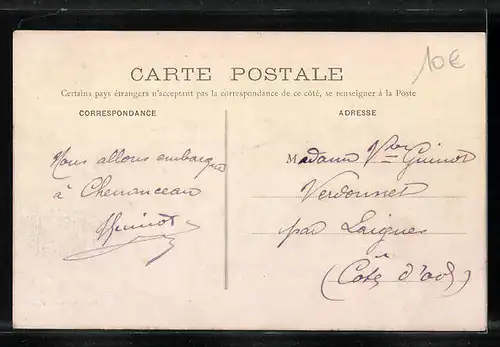 10€
CARTE POSTALE
Certains pays étrangers n'acceptent pas la correspondance de ce côté, se renseigner à la Poste
CORRESPONDANCE
ADRESSE
Nous allons embarquer
à Chenonceau
Guinot
Madame Vve Guinot
Verdonnet
par Laignes
(Côte d'or)